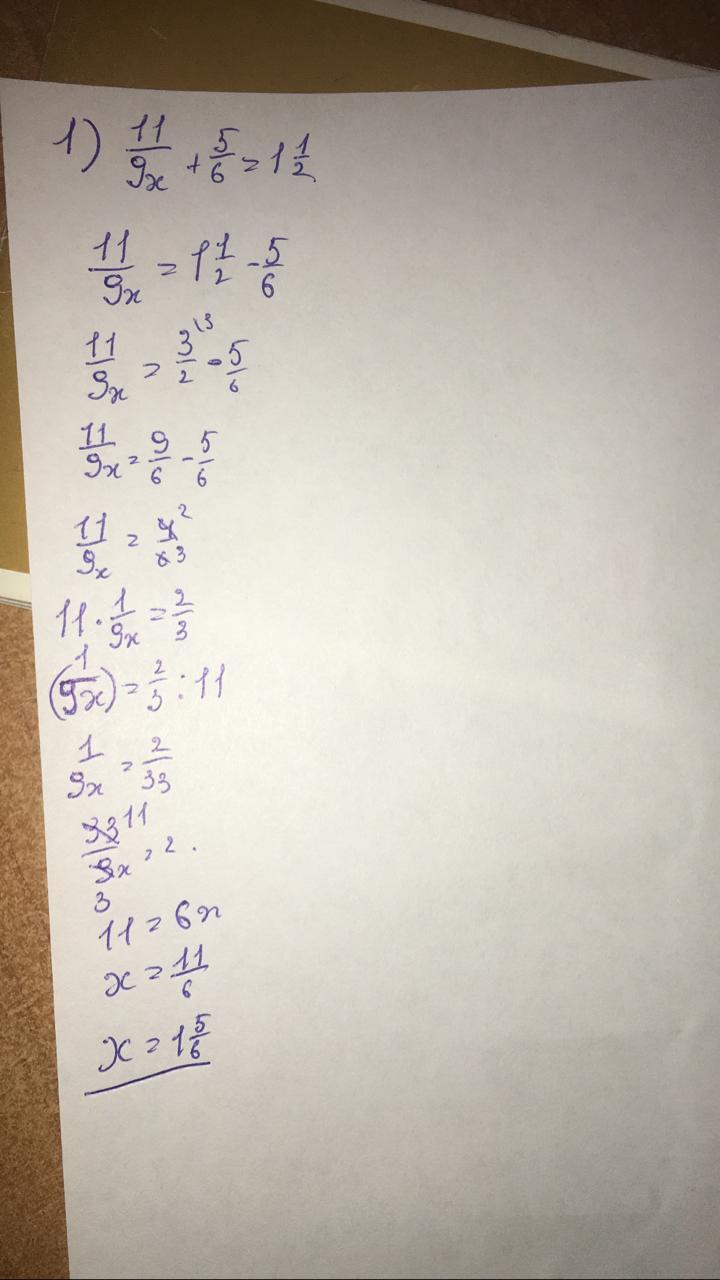 1) 11/9x + 5/6 = 1 1/2
11/9x = 1 1/2 - 5/6
11/9x = 3\3/2 - 5/6
11/9x = 9/6 - 5/6
11/9x = 4 2/6 3
11 · 1/9x = 2/3
(1/9x) = 2/3 : 11
1/9x = 2/33
33 11/9x 3 = 2.
11 = 6x
x = 11/6
x = 1 5/6